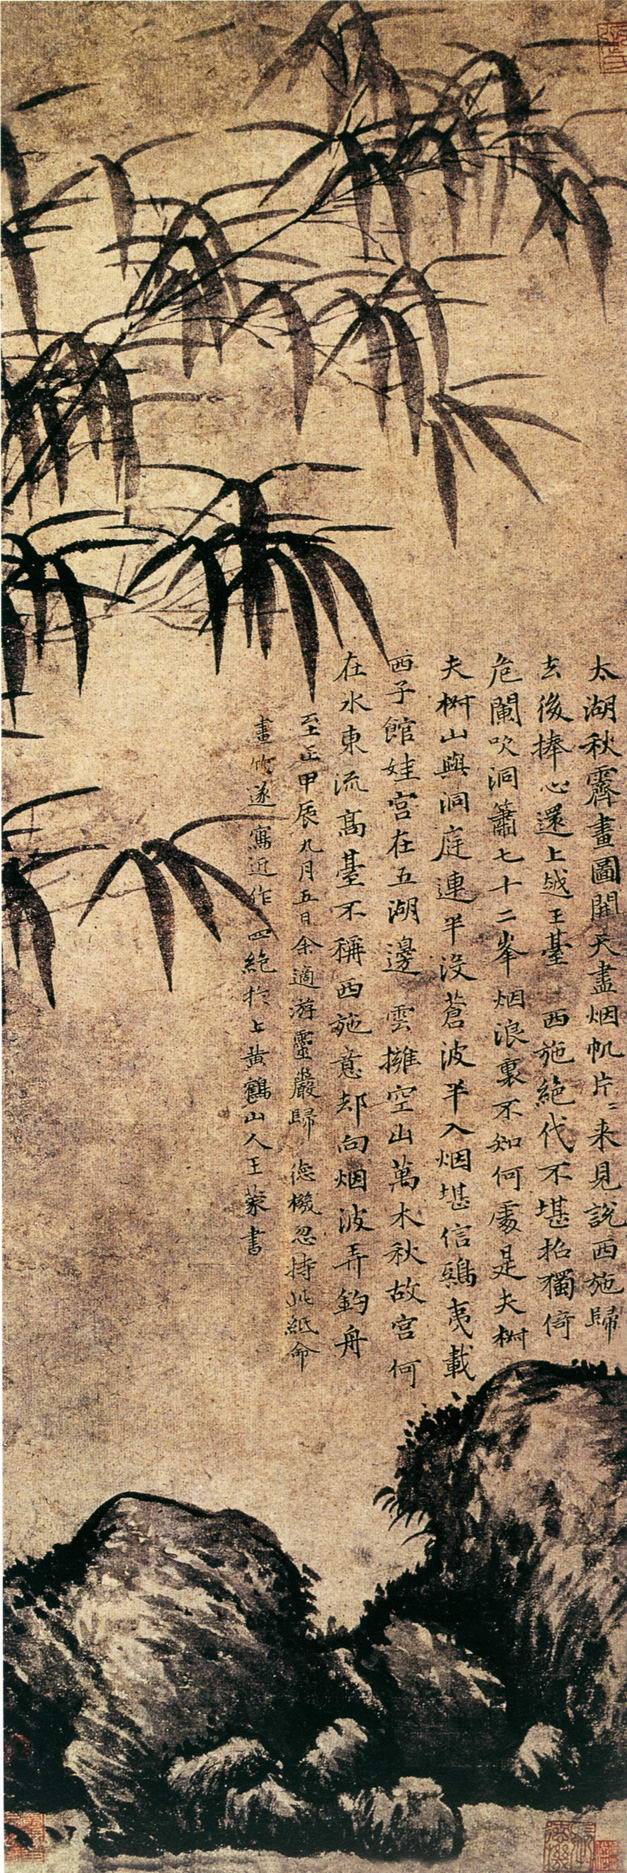 太湖秋霽畫圖開天盡烟帆片片來見說西施歸
去後捧心還上越王臺 西施絶代不堪招獨倚
危闌吹洞簫七十二峯烟浪裏不知何處是夫椒
夫椒山與洞庭連半沒蒼波半入烟堪信鴟夷載
西子館娃宮在五湖邊 雲擁空山萬木秋故宮何
在水東流高臺不稱西施意却向烟波弄釣舟
至正甲辰九月五日余適游靈巖歸 德機忽持此紙命
畫竹遂寫近作四絶於上黃鶴山人王蒙書